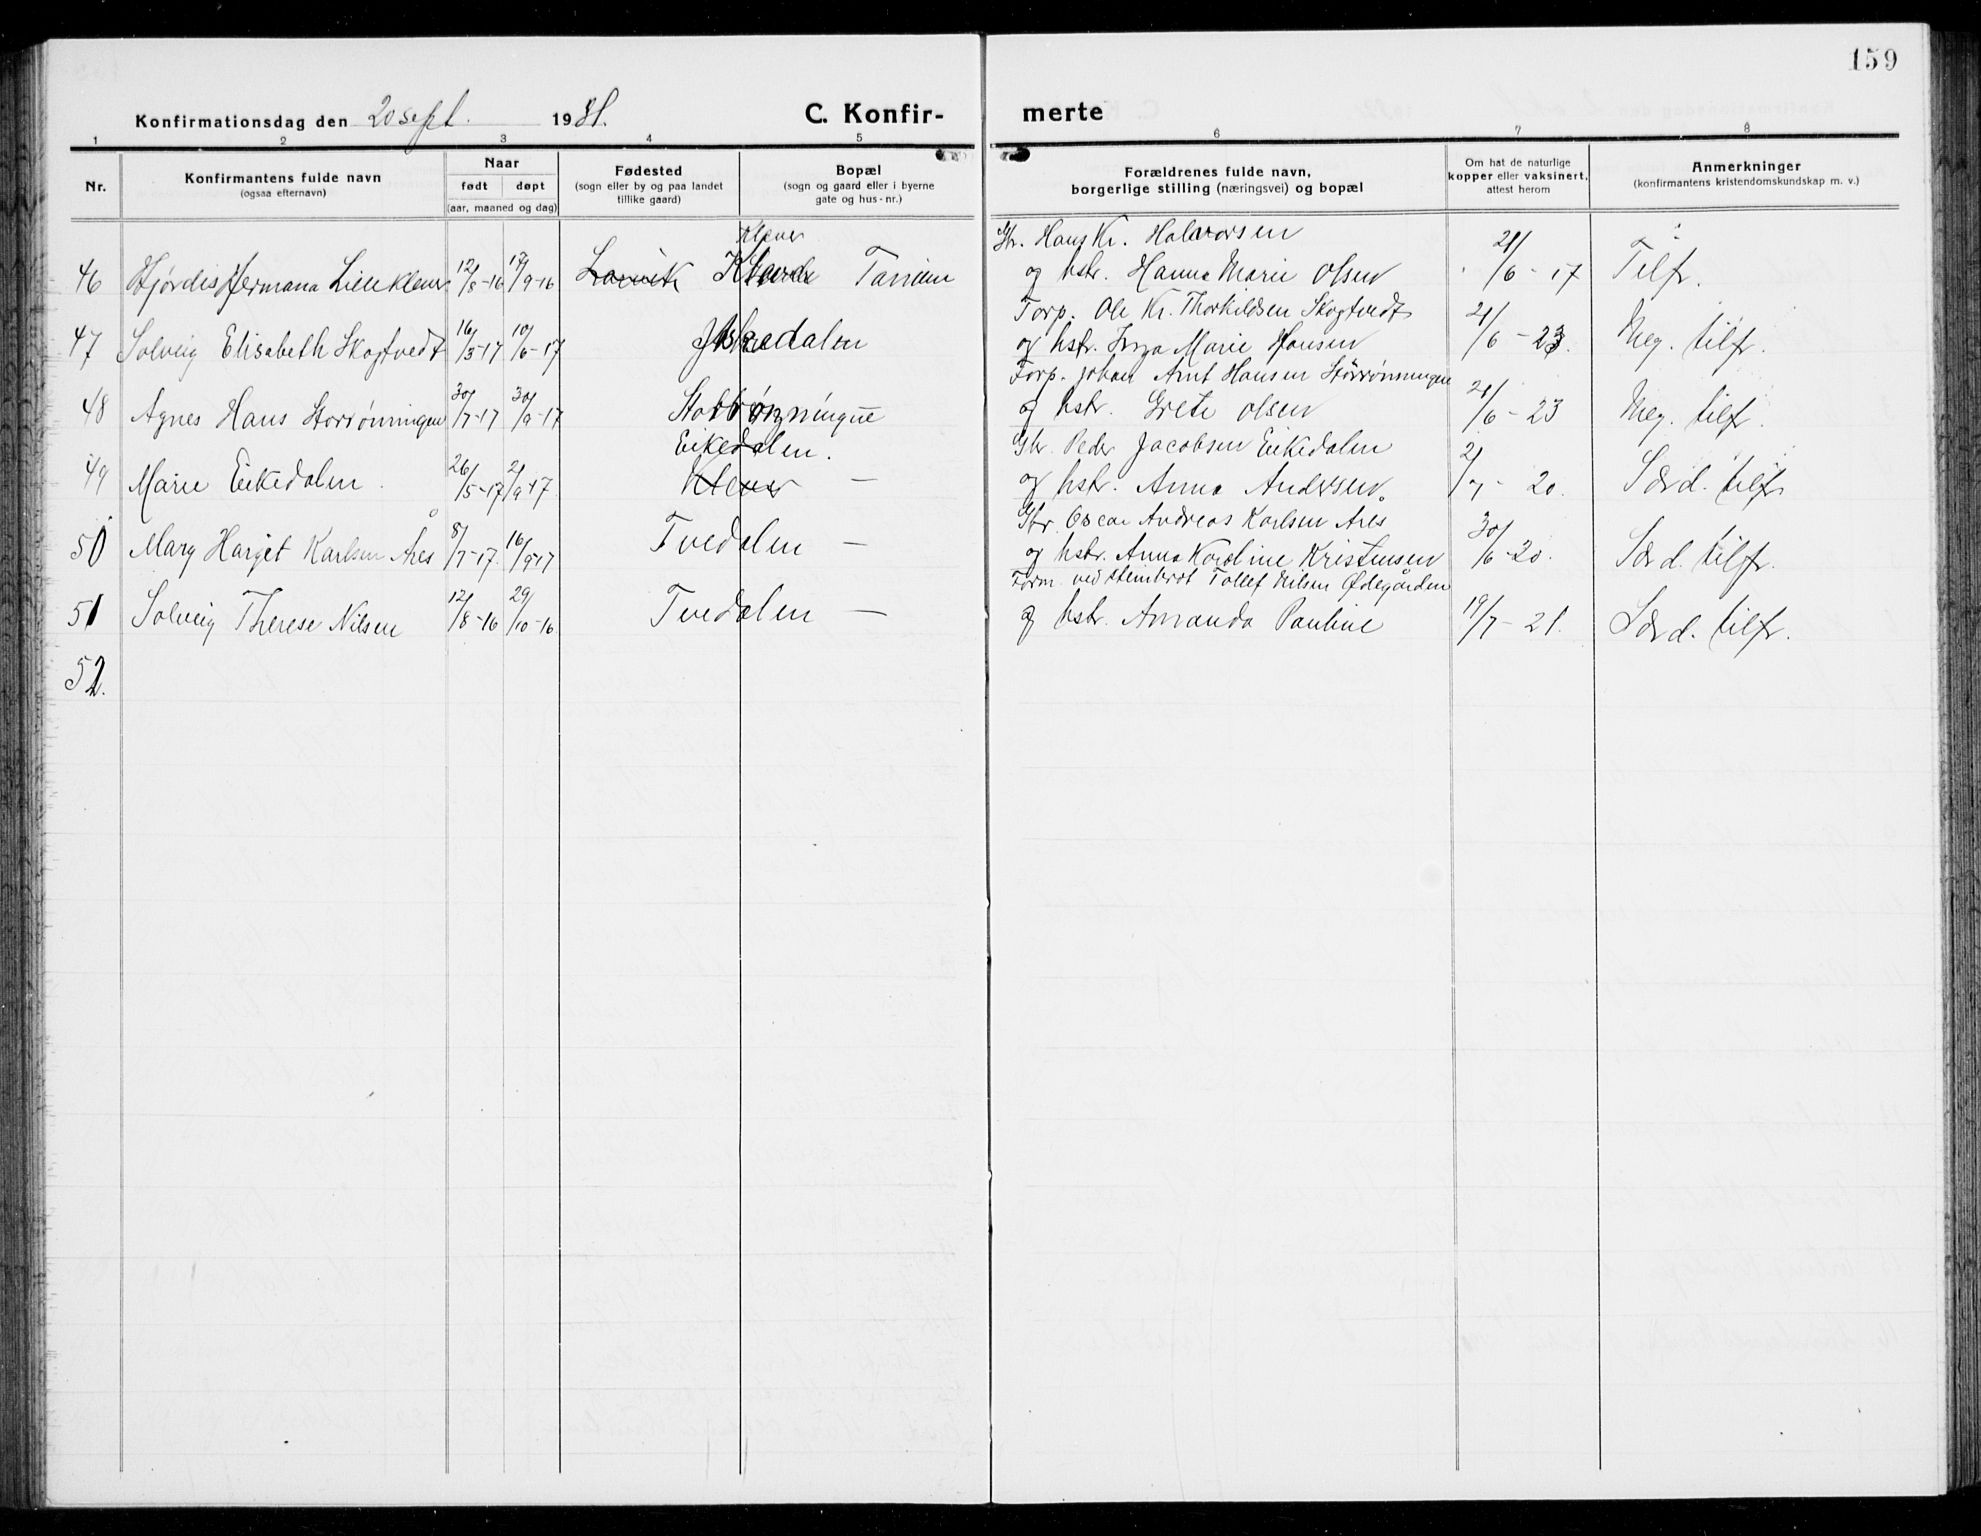 159
Konfirmationsdag den 20 sept. 1931. C. Konfir- merte
1 2 3 4 5 6 7 8
Nr.
Konfirmantens fulde navn
(ogsaa efternavn)
Naar
født døpt
(aar, maaned og dag)
Fødested
(sogn eller by og paa landet
tillike gaard)
Bopæl
(sogn og gaard eller i byerne
gate og hus-nr.)
Forældrenes fulde navn,
borgerlige stilling (næringsvei) og bopæl
Om hat de naturlige
kopper eller vaksinert,
attest herom
Anmerkninger
(konfirmantens kristendomskundskap m. v.)
Klever
Gbr. Hans Kr. Halvorsen
46 Hjørdis Hermana Lille Klever 12/8-16 17/9-16 Larvik Tanum og hstr. Hanna Marie Olsen 21/6-17 Tilfr.
Forp. Ole Kr. Thorkildsen Skogtvedt
47 Solveig Elisabeth Skogtvedt 16/3-17 10/6-17 og hstr. Inga Marie Hansen 21/6-23. Meg. tilfr.
Forp. Johan Arnt Hansen Storrønningen
48 Agnes Hans Storrønningen 30/7-17 30/9-17 og hstr. Grete Olsen 21/6-23 Meg. tilfr.
Eikedalen.
Gbr. Peder Jacobsen Eikedalen
49 Marie Eikedalen. 26/5-17 2/9-17 Klever — og hstr. Anna Andersen. 2/7-20. Særd. tilfr.
Gbr. Oscar Andreas Karlsen Åres
50 Mary Harjet Karlsen Åres 8/7-17. 16/9-17 Tvedalen — og hstr. Anna Karoline Kristensen 30/6-20. Særd. tilfr.
Form. ved stenbrot Tollef Nilsen Ødegården
51 Solveig Therese Nilsen 12/8-16 29/10-16 Tvedalen — og hstr. Amanda Pauline 19/7-21. Særd. tilfr.
52.